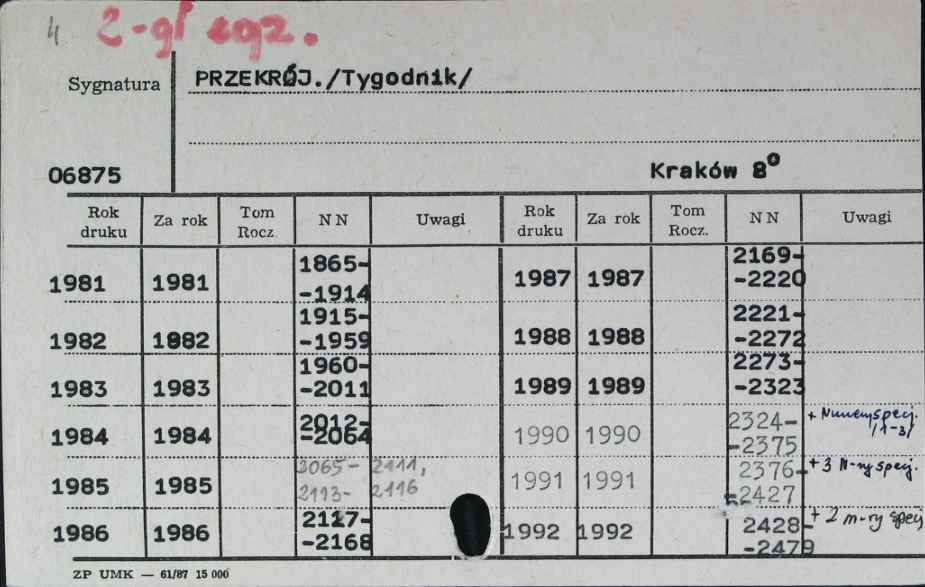 4 2-gi egz.
Sygnatura PRZEKRÓJ./Tygodnik/
06875 Kraków 8°
Rok druku Za rok Tom Rocz. N N Uwagi Rok druku Za rok Tom Rocz. N N Uwagi
1981 1981 1865-
-1914 1987 1987 2169-
-2220
1982 1982 1915-
-1959 1988 1988 2221-
-2272
1983 1983 1960-
-2011 1989 1989 2273-
-2323
1984 1984 2012-
-2064 1990 1990 2324-
-2375 + Numery specj.
/1-3/
1985 1985 2065- 2111,
2113- 2116 1991 1991 2376-
-2427 + 3 N-ry specj.
1986 1986 2117-
-2168 1992 1992 2428-
-2479 + 2 n-ry specj
ZP UMK — 61/87 15 000